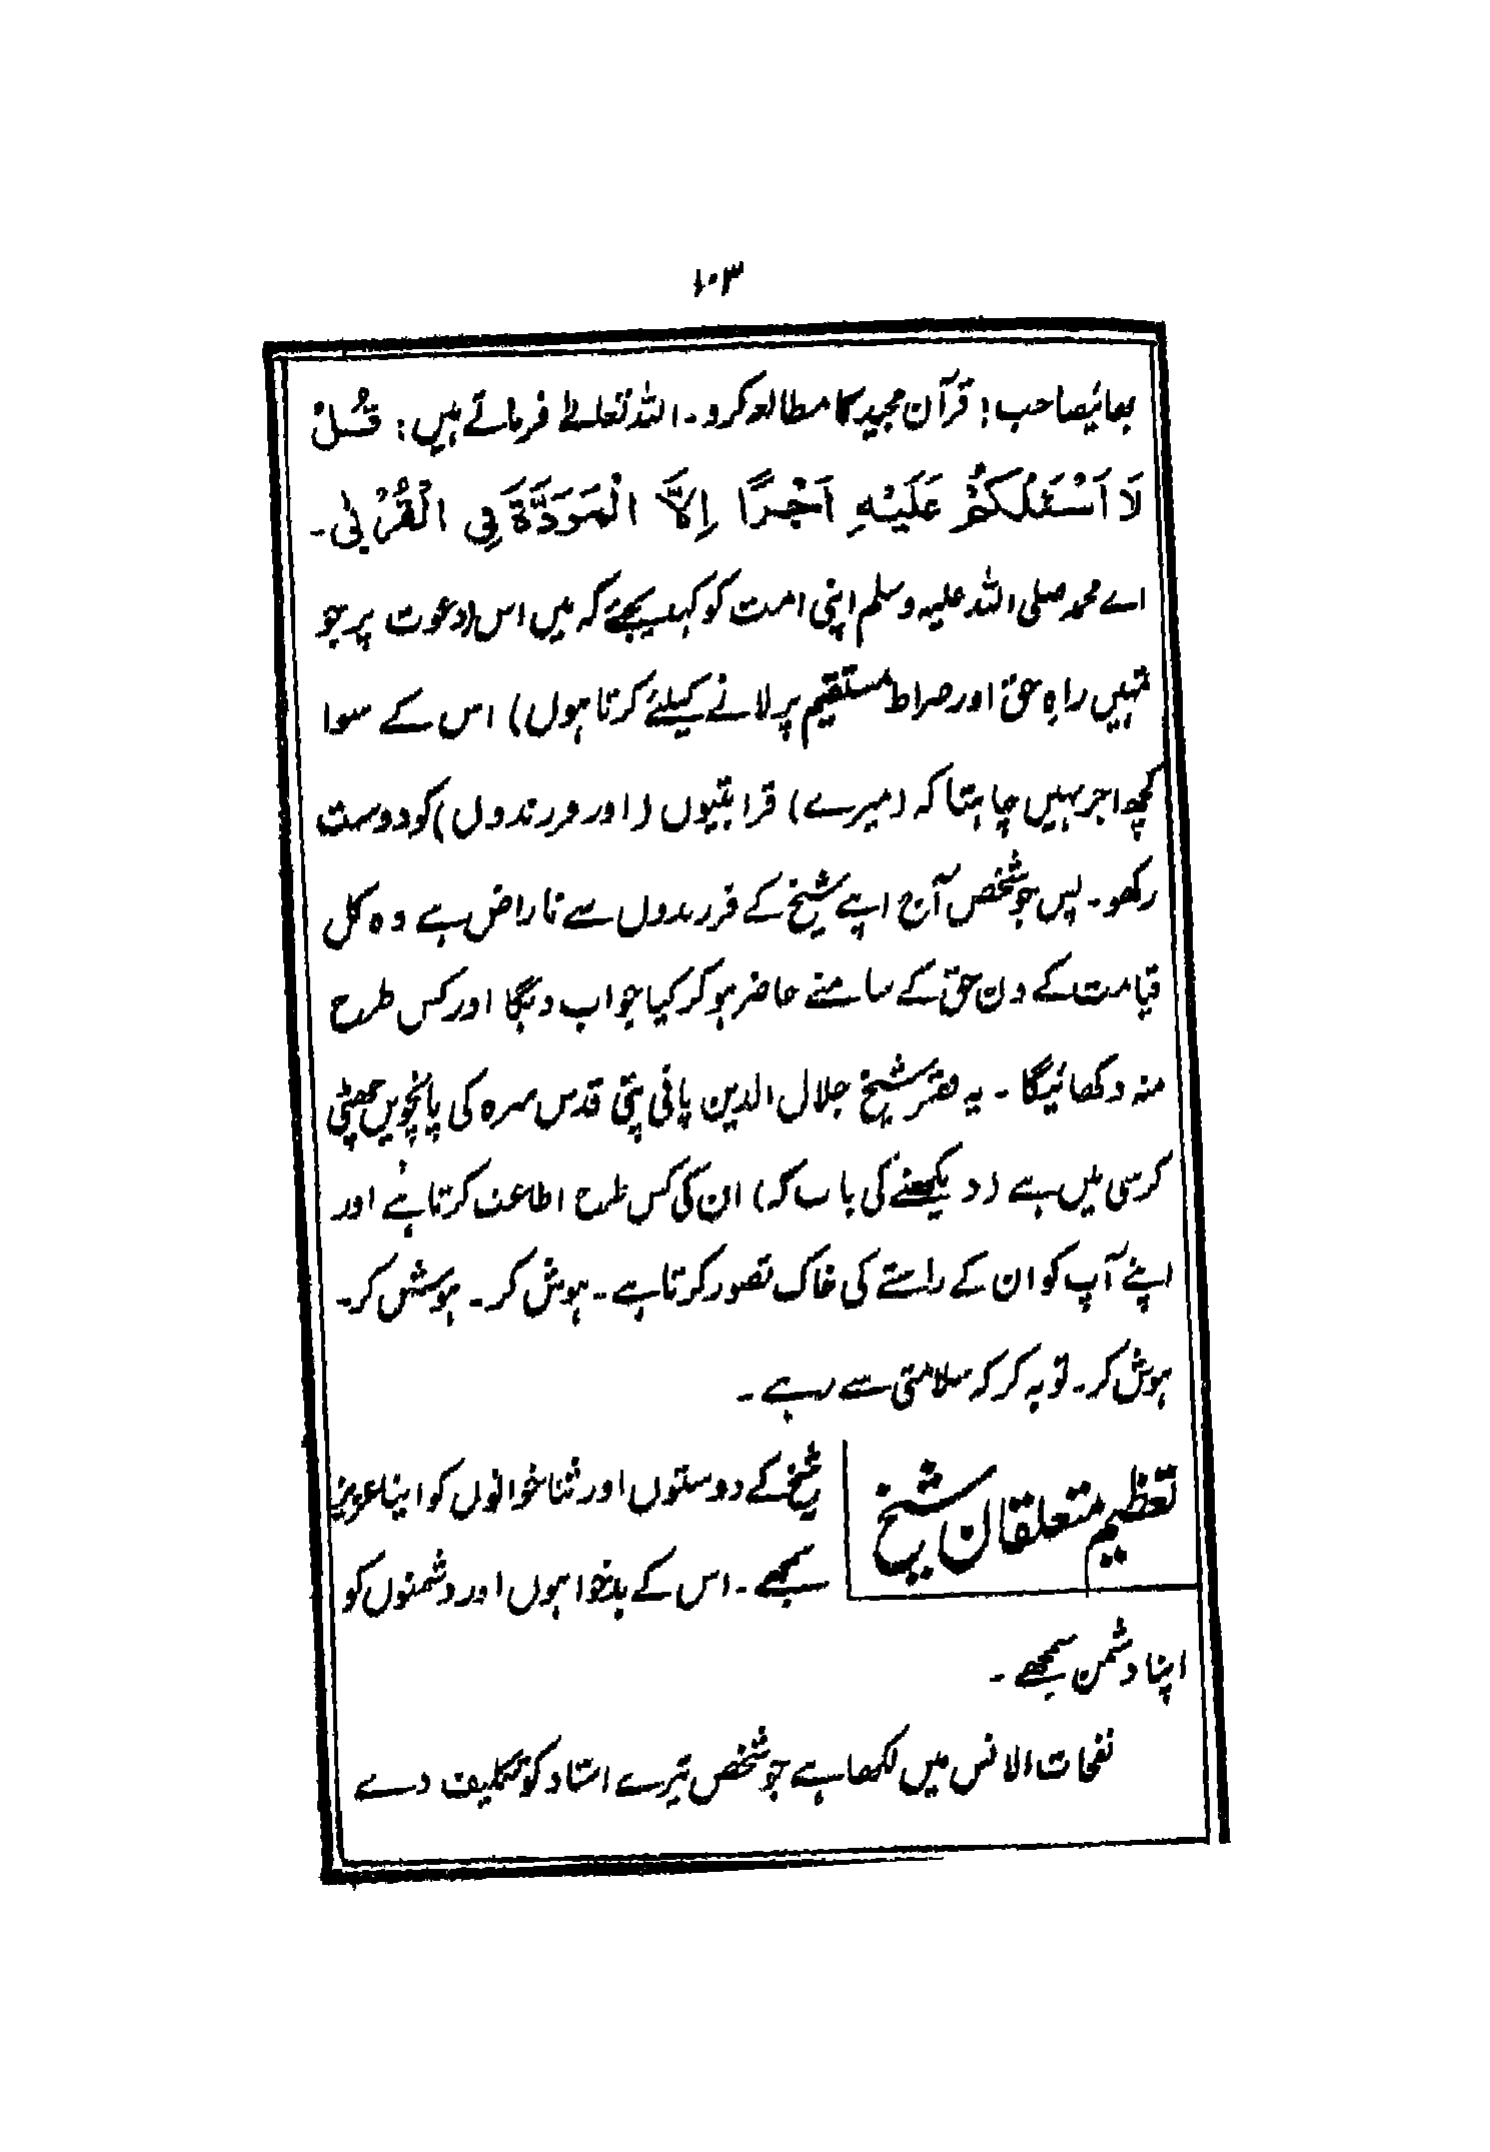 ۱۰۳
بھائیصاحب! قرآن مجید کا مطالعہ کرو۔ اللہ تعالےٰ فرماتے ہیں: قُلْ
لَا اَسْئَلُکُمْ عَلَیْہِ اَجْرًا اِلَّا الْمَوَدَّۃَ فِی الْقُرْبٰی۔
اے محمد صلی اللہ علیہ وسلم اپنی امت کو کہدیجئے کہ میں اس (دعوت پر جو
تہیں راہِ حق اور صراط مستقیم پر لانے کیلئے کرتا ہوں) اس کے سوا
کچھ اجر نہیں چاہتا کہ (میرے) قرابتیوں (اور فرزندوں) کو دوست
رکھو۔ پس جو شخص آج اپنے شیخ کے فرزندوں سے ناراض ہے وہ کل
قیامت کے دن حق کے سامنے حاضر ہو کر کیا جواب دیگا اور کس طرح
منہ دکھائیگا۔ یہ فقیر شیخ جلال الدین پانی پتی قدس سرہ کی پانچویں چھٹی
کرسی میں ہے (دیکھنے کی بات کہ) ان کی کس طرح اطاعت کرتا ہے اور
اپنے آپ کو ان کے راستے کی خاک تصور کرتا ہے۔ ہوش کر۔ ہوش کر۔
ہوش کر۔ توبہ کر کہ سلامتی سے رہے۔
تعظیم متعلقان شیخ
شیخ کے دوستوں اور ثنا خوانوں کو اپنا عزیز
سمجھے۔ اس کے بدخواہوں اور دشمنوں کو
اپنا دشمن سمجھے۔
نفحات الانس میں لکھا ہے جو شخص تیرے استاد کو تکلیف دے